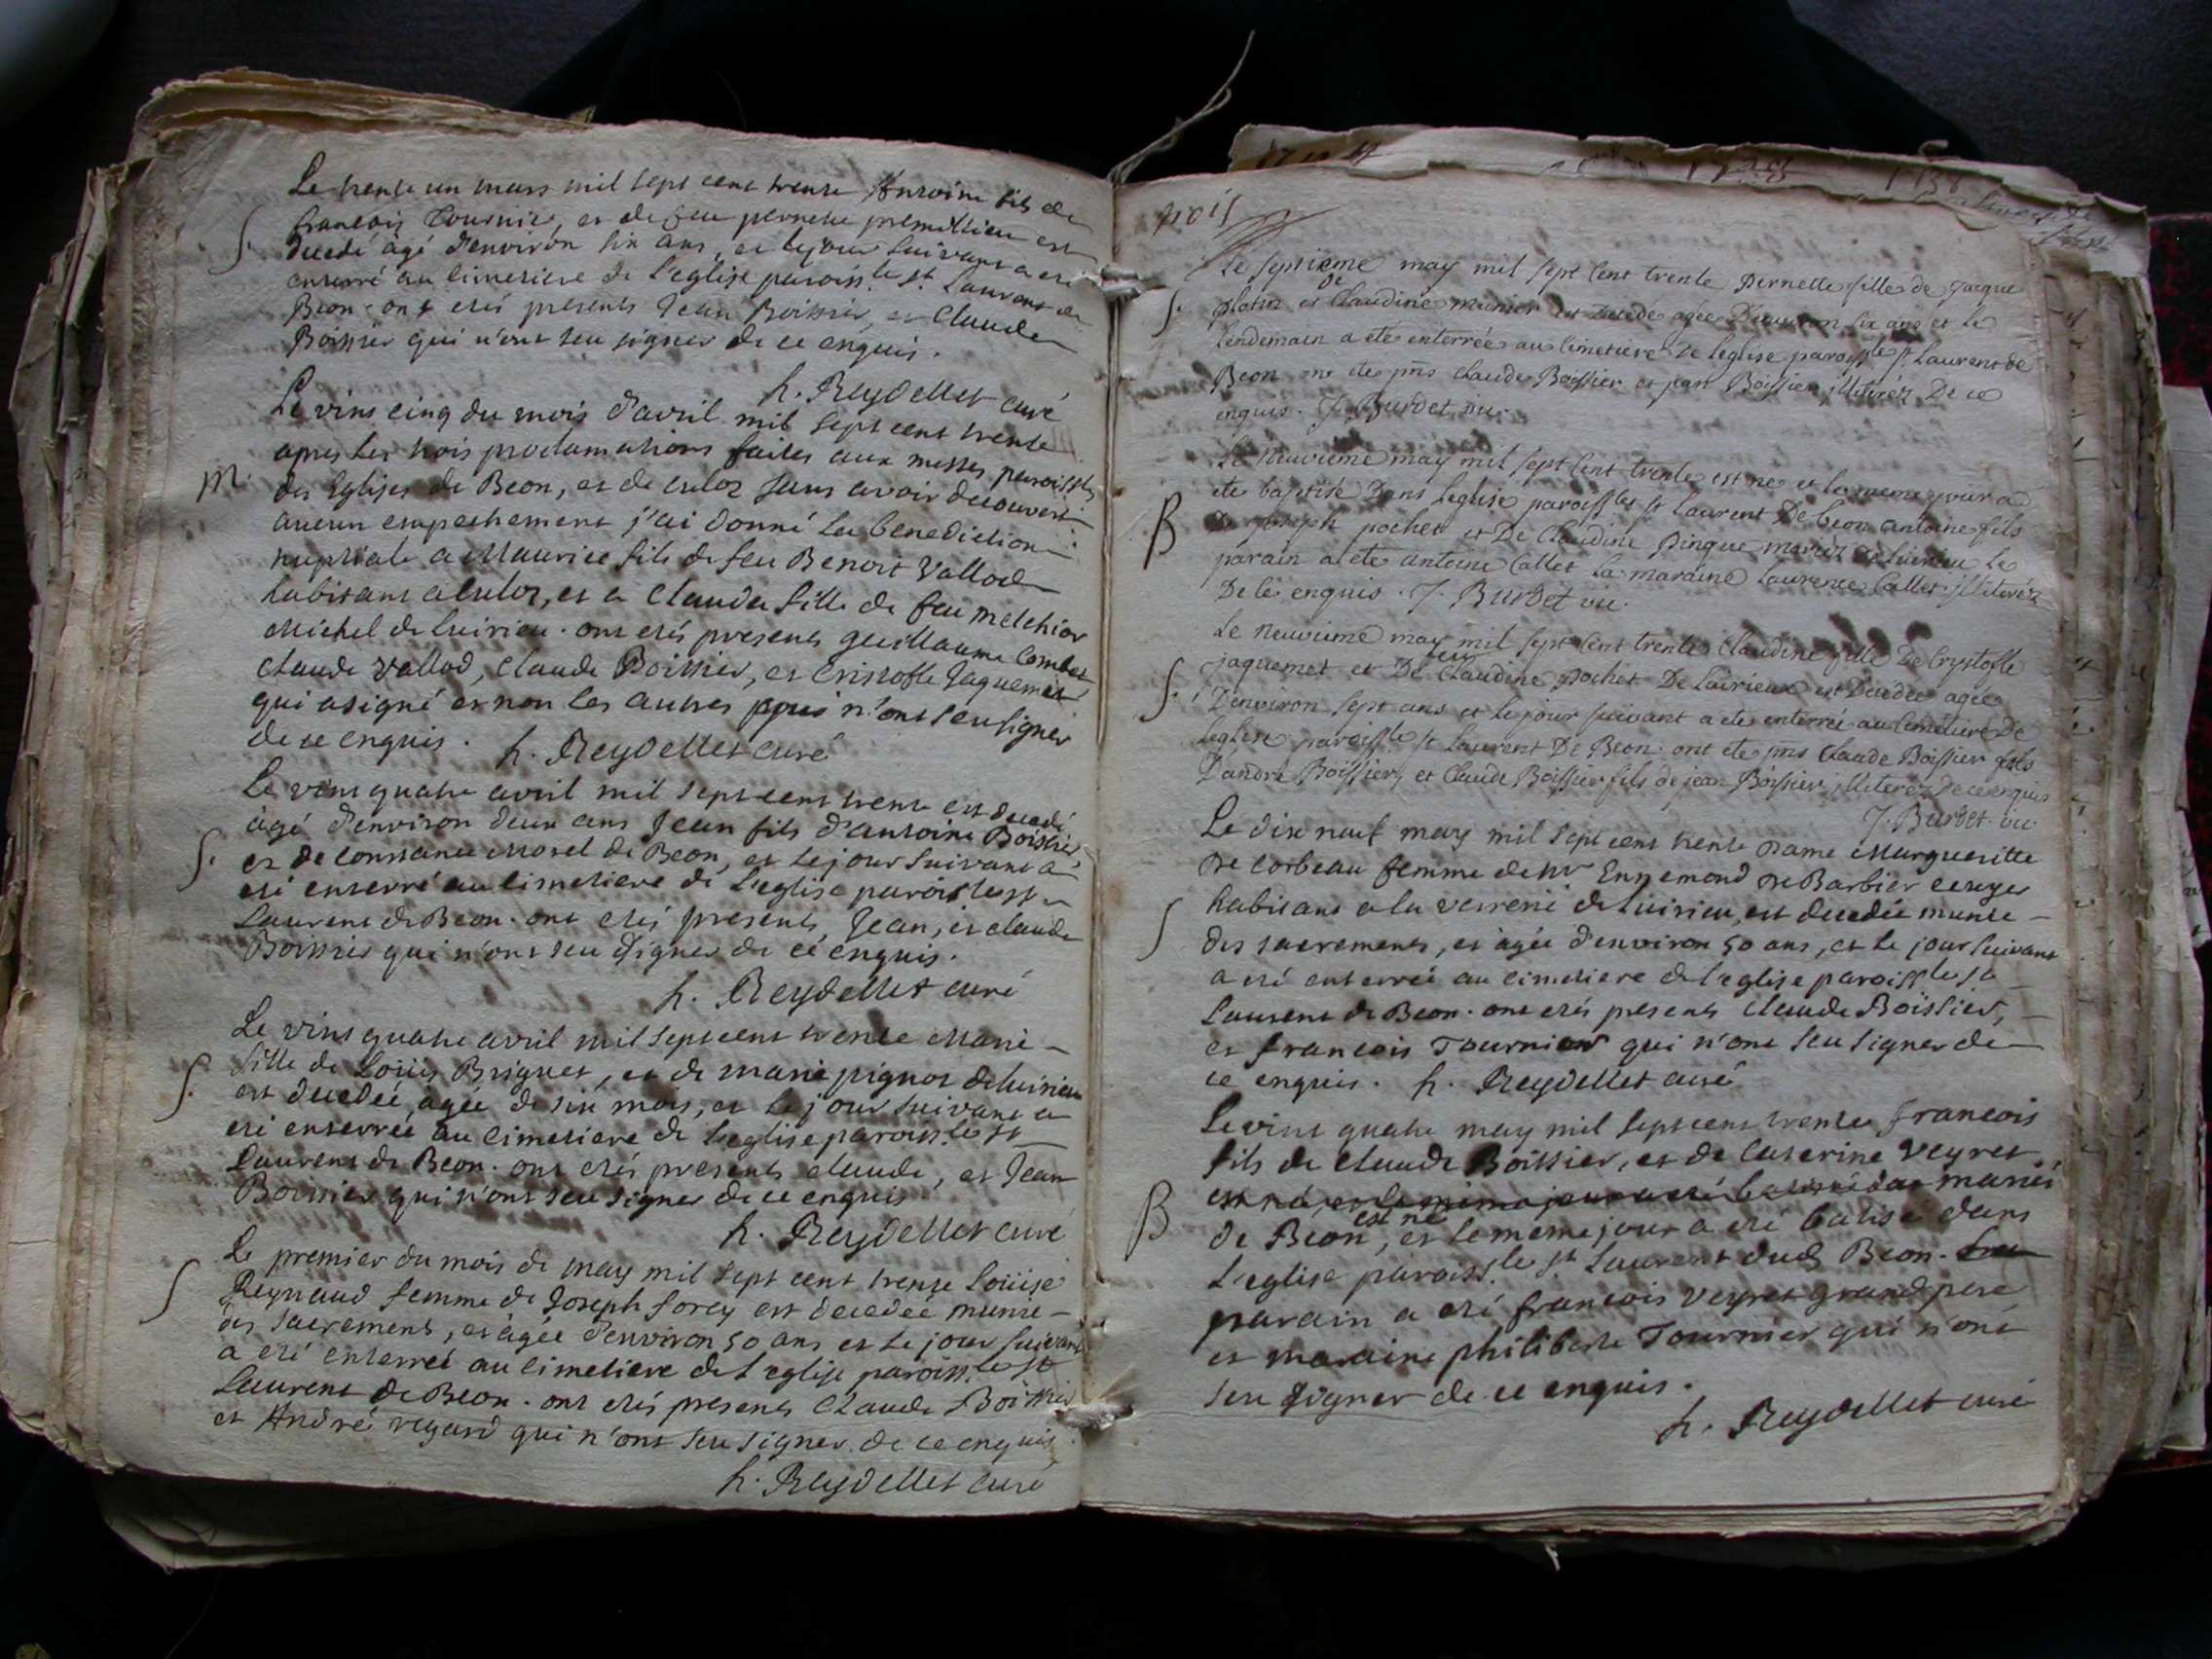 Le trente un mars mil sept cent trente Antoine fils de
francois Tournier, et de feu pernette premillieu est
S. decedé agé d'environ six ans, et le jour suivant a eté
enterré au cimetiere de l'eglise paroiss.le st. Laurent de
Beon. ont etés presents Jean Boissier, et Claude
Boissier qui n'ont seu signer de ce enquis.
h. Reydellet curé
Le vint cinq du mois d'avril mil sept cent trente
apres les trois proclamations faites aux messes paroissles
M. des Eglises de Beon, et de culoz sans avoir decouvert
aucun empechement j'ai donné la benediction
nuptiale a Maurice fils de feu Benoit Vallod
habitant a culoz, et a Clauda fille de feu melchior
Michel de luirieu. ont etés presents guillaume Combet
claude vallod, Claude Boissier, et Cristofle Jaquemet
qui a signé et non les autres pour n'ont seu signer
de ce enquis. h. Reydellet curé
Le vint quatre avril mil sept cent trente est decedé
agé d'environ deux ans Jean fils d'antoine Boissier,
S. et de constance Morel de Beon, et le jour suivant a
eté enterré au cimetiere de l'eglise paroissle st
Laurent de Beon. ont etés presents Jean, et claude
Boissier qui n'ont seu signer de ce enquis.
h. Reydellet curé
Le vint quatre avril mil sept cent trente Marie
fille de Loüis Briguet, et de marie pignot de luirieu
S. est decedée, agée de six mois, et le jour suivant a
eté enterrée au cimetiere de l'eglise paroiss.le st
Laurent de Beon. ont etés presents claude, et Jean
Boissier qui n'ont seu signer de ce enquis
h. Reydellet curé
Le premier du mois de may mil sept cent trente Loüise
S Reynaud femme de Joseph forey est decedée munie
des sacrements, et agée d'environ 50 ans et le jour suivant
a eté enterrée au cimetiere de l'eglise paroiss.le st
Laurent de Beon. ont etés presents Claude Boissier
et André regard qui n'ont seu signer de ce enquis
h. Reydellet curé
Le septieme may mil sept cent trente Pernelle fille de Jaque
S. plotin et de Claudine munier est decedé agée D'environ six ans et le
lendemain a ete enterrée au cimetiere De leglise paroissle st Laurent de
Beon ont ete pnts claude Boissier et jean Boissier jlliterez De ce
enquis. J. Burdet vic.
Le neuvieme may mil sept cent trente est né et le meme jour a
ete baptisé Dans leglise paroissles st Laurent De beon antoine fils
B De joseph pochet et De Claudine Pingue mariez de luirieu le
parain a ete antoine Callet la maraine Laurence Callet jlliterez
De ce enquis. J. Burdet vic.
Le neuvieme may mil sept cent trente Claudine fille De Crystofle
jaquemet et De feu Claudine pochet De Luirieux est Decedée agée
S. D'environ sept ans et le jour suivant a ete enterrée au cimetiere De
leglise paroissle st Laurent De Beon. ont ete pnts Claude Boissier fils
D'andre Boissier, et Claude Boissier fils de jean Boissier jlliterez De ce enquis
J. Burdet vic
Le dix neuf may mil sept cent trente Dame Margueritte
De Corbeau femme de nr Ennemond De Barbier ecuyer
habitant a la verrerie de luirieu, est decedée munie
S des sacrements, et agée d'environ 50 ans, et le jour suivant
a eté enterrée au cimetiere de l'eglise paroissle st
Laurent de Beon. ont etés presents Claude Boissier,
et francois Tournier qui n'ont seu signer de
ce enquis. h. Reydellet curé
Le vint quatre may mil sept cent trente francois
fils de claude Boissier, et de Caterine Veyret
est né, et le meme jour a eté batisé dan mariés
B de Beon, est né et le meme jour a eté batisé dans
L'eglise paroiss.le st Laurent dud Beon.
parain a eté francois veyret grand pere
et maraine philiberte Tournier qui n'ont
seu signer de ce enquis.
h. Reydellet curé